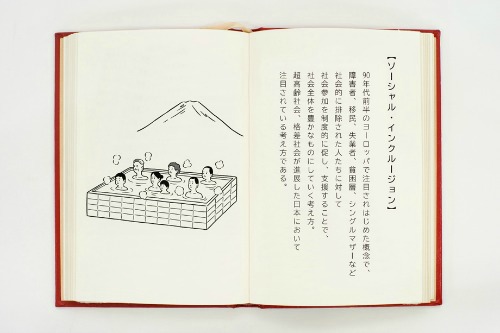 【ソーシャル・インクルージョン】
90年代前半のヨーロッパで注目されはじめた概念で、
障害者、移民、失業者、貧困層、シングルマザーなど
社会的に排除された人たちに対して
社会参加を制度的に促し、支援することで、
社会全体を豊かなものにしていく考え方。
超高齢社会、格差社会が進展した日本において
注目されている考え方である。